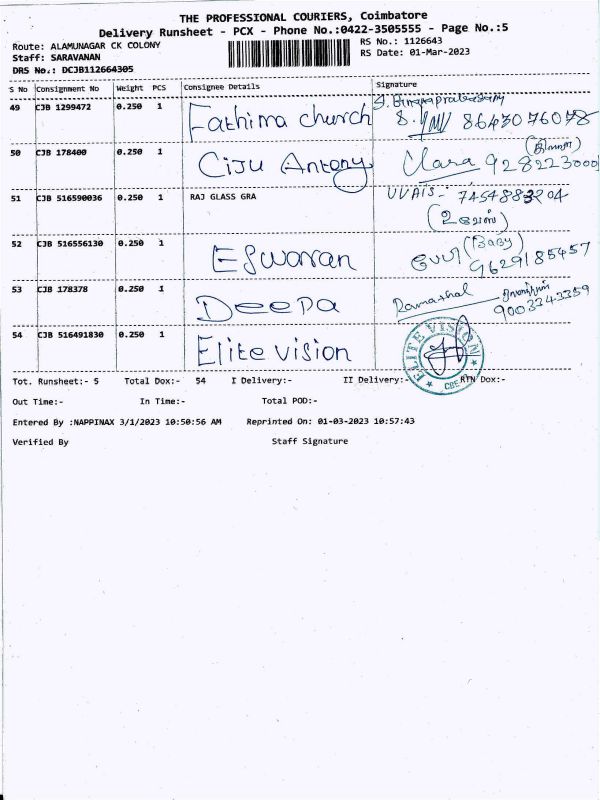 THE PROFESSIONAL COURIERS, Coimbatore
Delivery Runsheet - PCX - Phone No.:0422-3505555 - Page No.:5
Route: ALAMUNAGAR CK COLONY
Staff: SARAVANAN
DRS No.: DCJB112664305
RS No.: 1126643
RS Date: 01-Mar-2023
S No Consignment No Weight PCS Consignee Details Signature
49 CJB 1299472 0.250 1 Fathima church 8643076078
50 CJB 178400 0.250 1 Ciju Antony Clara 928223000
51 CJB 516590036 0.250 1 RAJ GLASS GRA UVAIS- 7454883204
(உவைஸ்)
52 CJB 516556130 0.250 1 Eswaran பேபி (Baby)
9629185457
53 CJB 178378 0.250 1 Deepa Ramathal
9003343359
54 CJB 516491830 0.250 1 Elite vision ELITE VISION CBE
Tot. Runsheet:- 5 Total Dox:- 54 I Delivery:- II Delivery:- RTN Dox:-
Out Time:- In Time:- Total POD:-
Entered By :NAPPINAX 3/1/2023 10:50:56 AM Reprinted On: 01-03-2023 10:57:43
Verified By Staff Signature